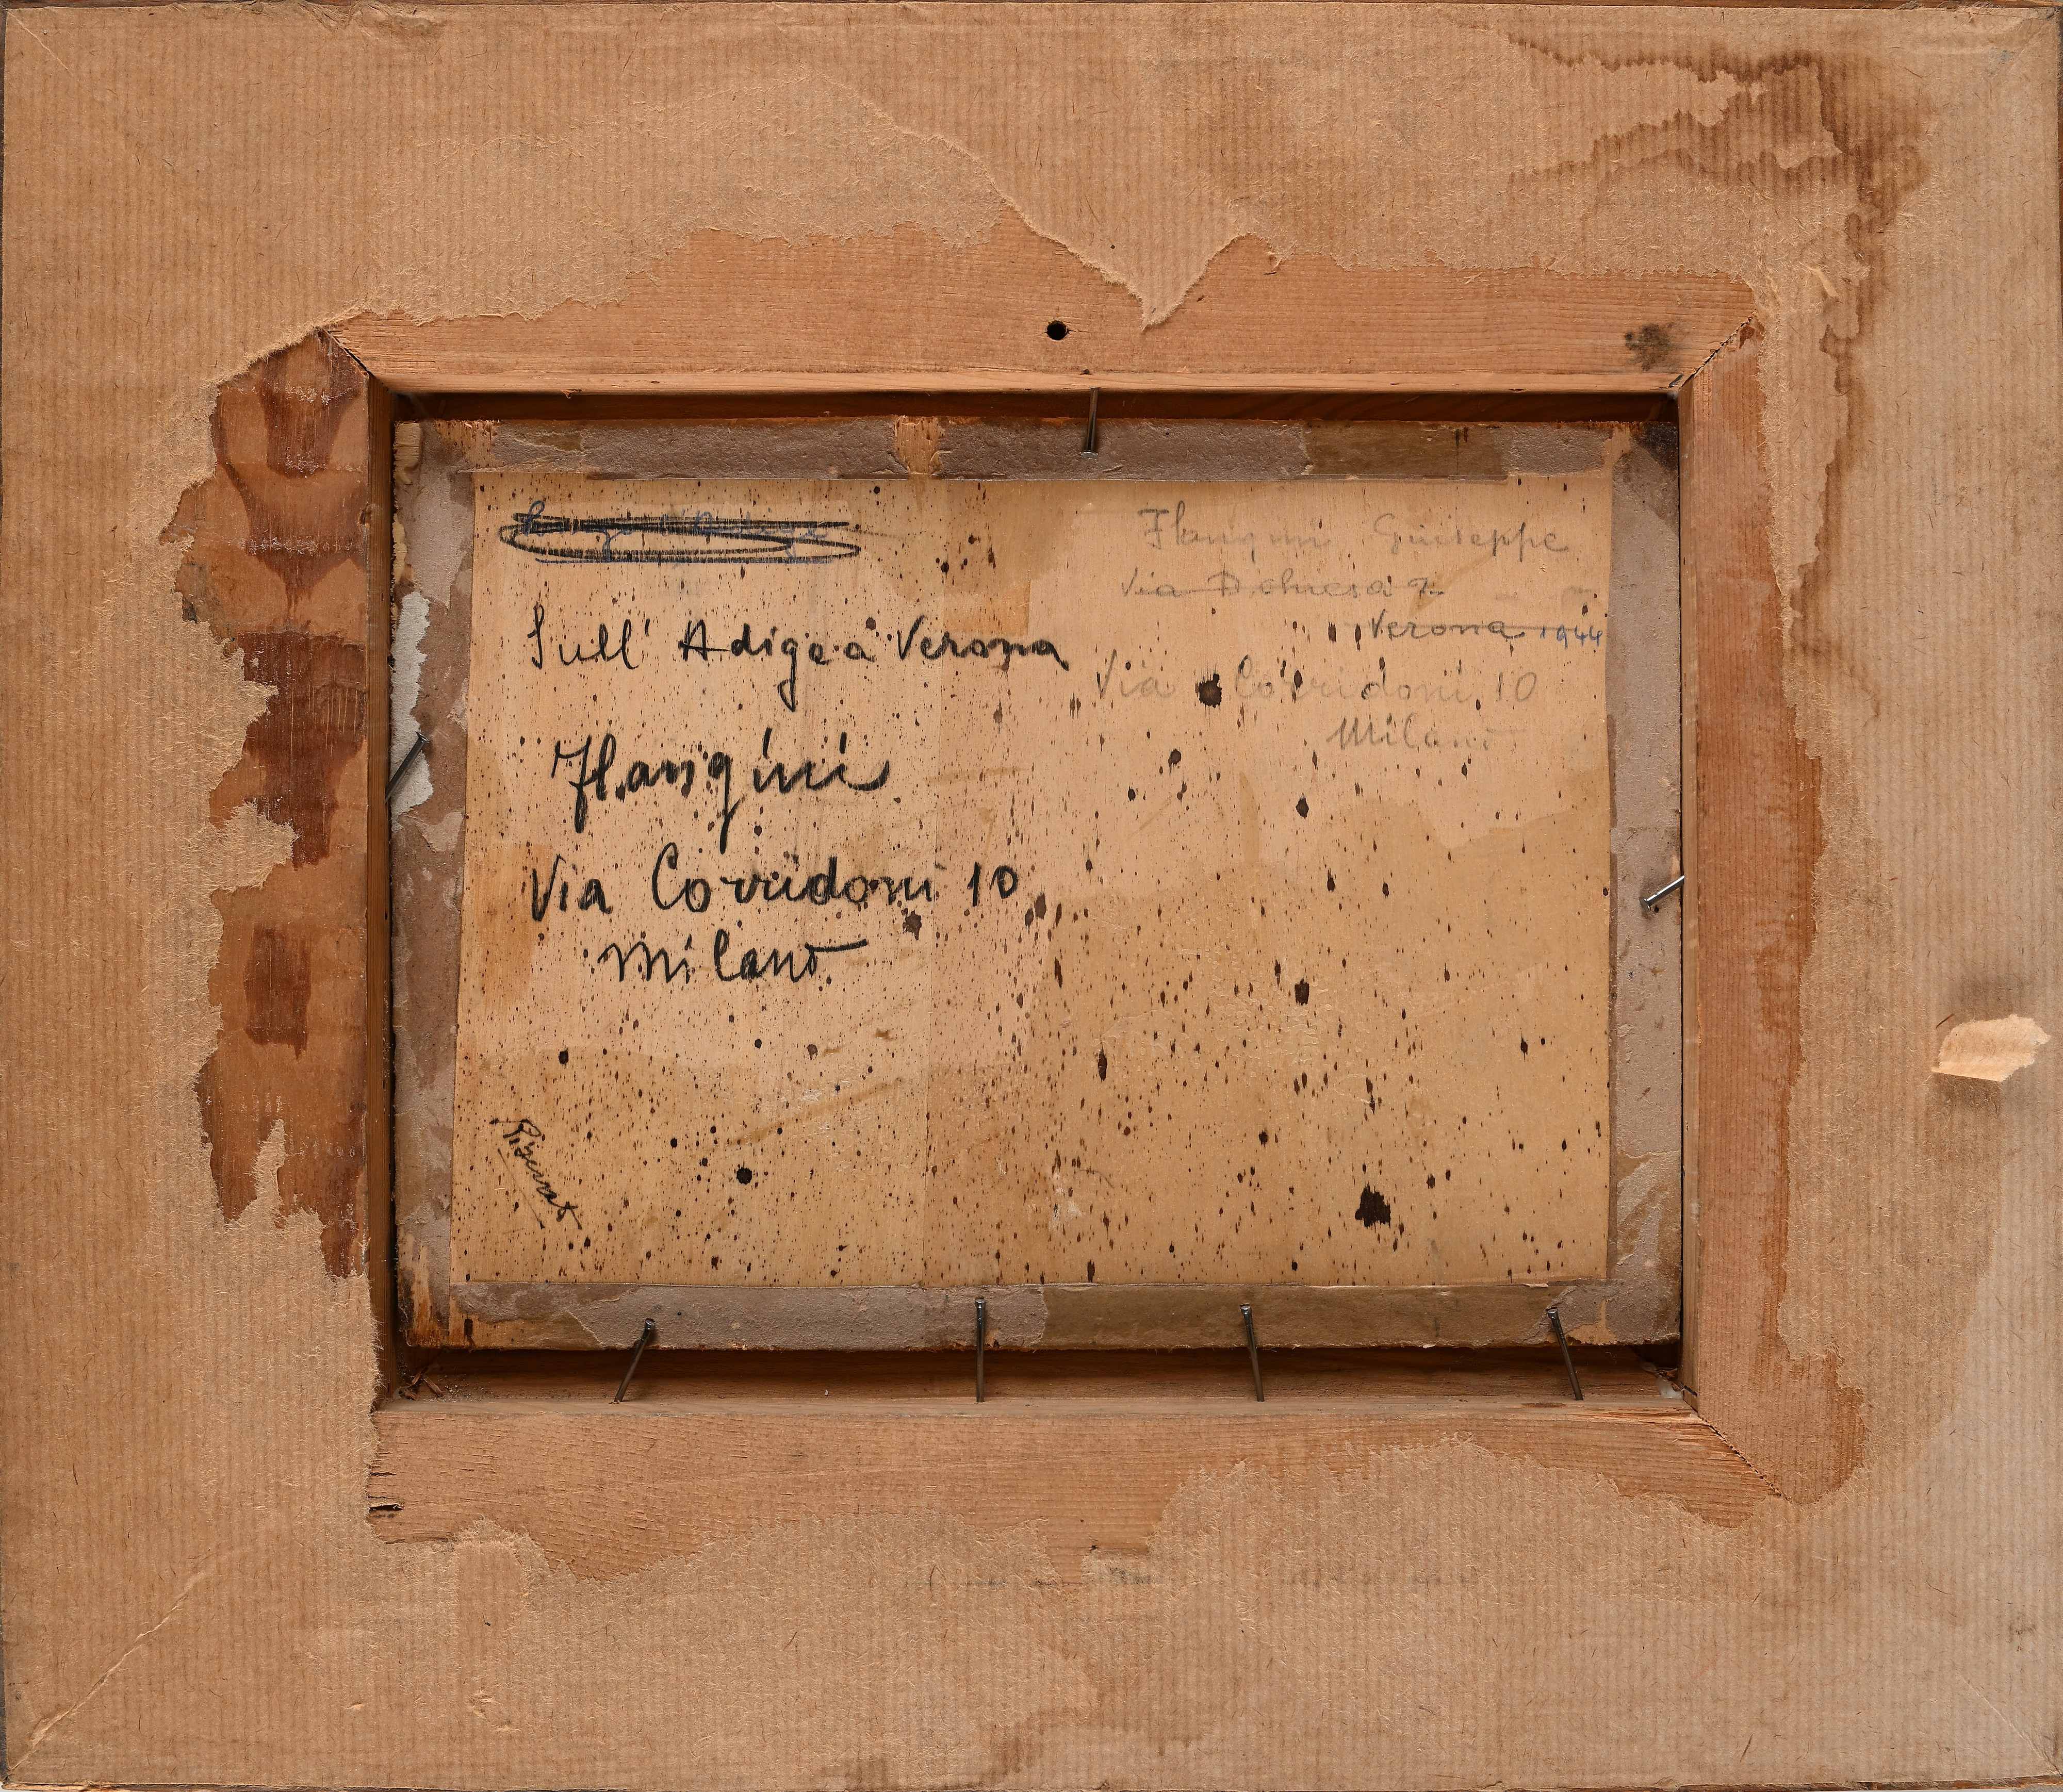 Sull' Adige a Verona
Flangini
Via Corridoni 10
Milano
Flangini Giuseppe
Via
Verona 1944
Via Corridoni 10
Milano